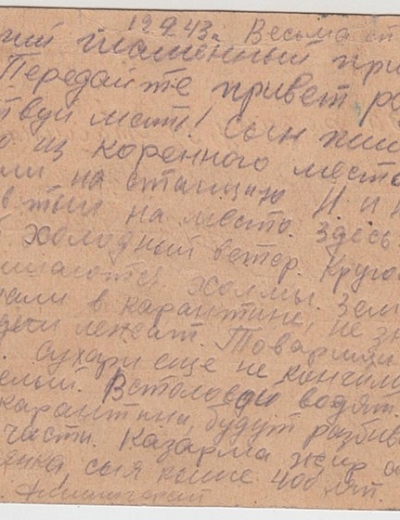 12 9 43г. Весьма
пламенный при
Передайте привет ро
твуй мать! Сын пиш
о из коренного место
ли на станцию И. и
в тыл на место. Здесь
холодный ветер. Круго
шаются холмы. Зем
али в карантине, не зн
лежат. Товарищи
Сухари еще не кончили
елый. В столовой водят.
карантина, будут разбив
части. Казарма
400 лят.